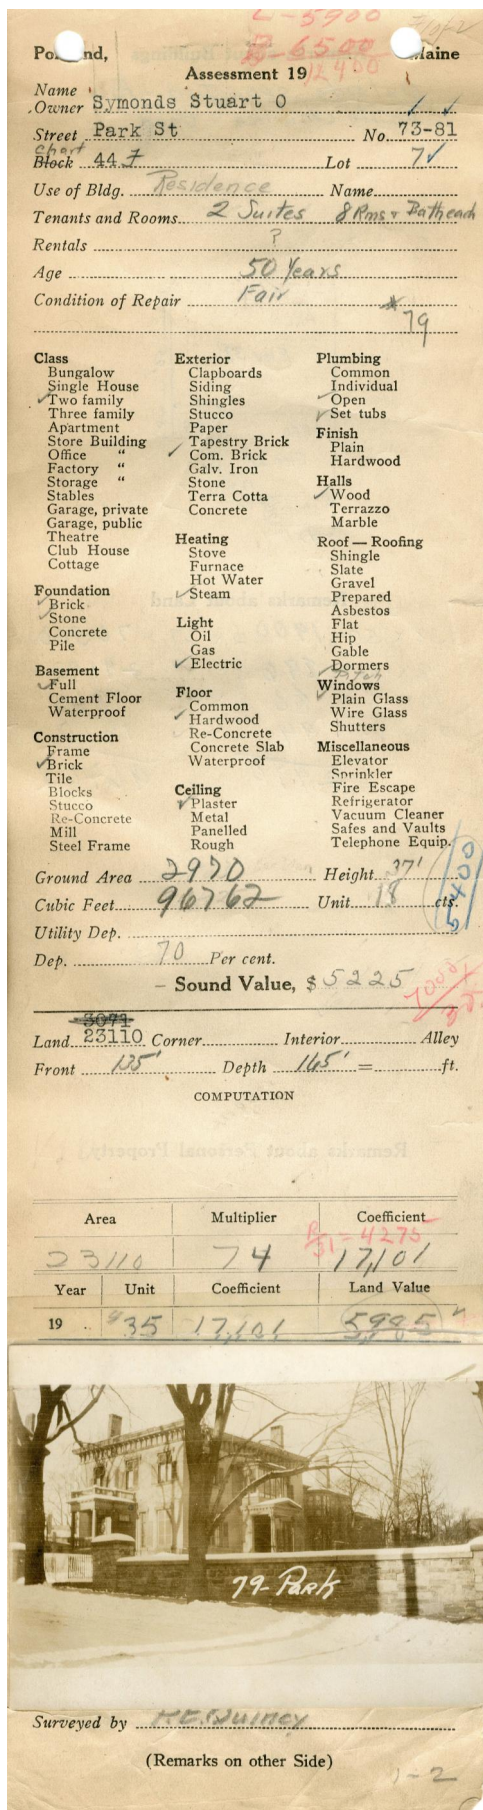 L-5900
B-6500
12400
Portland, Maine
Assessment 19
Name
Owner Symonds Stuart O
Street Park St No. 73-81
Chart
Block 44 F Lot 7
Use of Bldg. Residence Name
Tenants and Rooms 2 Suites 8 Rms & Bath each
Rentals ?
Age 50 Years
Condition of Repair Fair
*79
Class
Bungalow
Single House
✓Two family
Three family
Apartment
Store Building
Office "
Factory "
Storage "
Stables
Garage, private
Garage, public
Theatre
Club House
Cottage
Foundation
✓Brick
✓Stone
Concrete
Pile
Basement
✓Full
Cement Floor
Waterproof
Construction
Frame
✓Brick
Tile
Blocks
Stucco
Re-Concrete
Mill
Steel Frame
Exterior
Clapboards
Siding
Shingles
Stucco
Paper
Tapestry Brick
✓Com. Brick
Galv. Iron
Stone
Terra Cotta
Concrete
Heating
Stove
Furnace
Hot Water
✓Steam
Light
Oil
Gas
✓Electric
Floor
Common
✓Hardwood
Re-Concrete
Concrete Slab
Waterproof
Ceiling
✓Plaster
Metal
Panelled
Rough
Plumbing
Common
Individual
✓Open
✓Set tubs
Finish
Plain
Hardwood
Halls
✓Wood
Terrazzo
Marble
Roof — Roofing
Shingle
Slate
Gravel
Prepared
Asbestos
Flat
Hip
Gable
Dormers
Pitch
Windows
✓Plain Glass
Wire Glass
Shutters
Miscellaneous
Elevator
Sprinkler
Fire Escape
Refrigerator
Vacuum Cleaner
Safes and Vaults
Telephone Equip.
Ground Area 2970 Height 37'
Cubic Feet 96762 Unit 18 cts.
5400
Utility Dep.
Dep. 70 Per cent.
Sound Value, $ 5225
3071
Land 23110 Corner Interior Alley
Front 135' Depth 165' = ft.
COMPUTATION
Area Multiplier Coefficient
= 4275
23110 74 17,101
Year Unit Coefficient Land Value
19 35 17,101 5985
79-Park
Surveyed by
(Remarks on other Side)
1-2